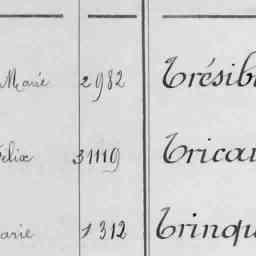 Marie 2982 Trésib
Félix 31119 Trican
Marie 1312 Trinqu